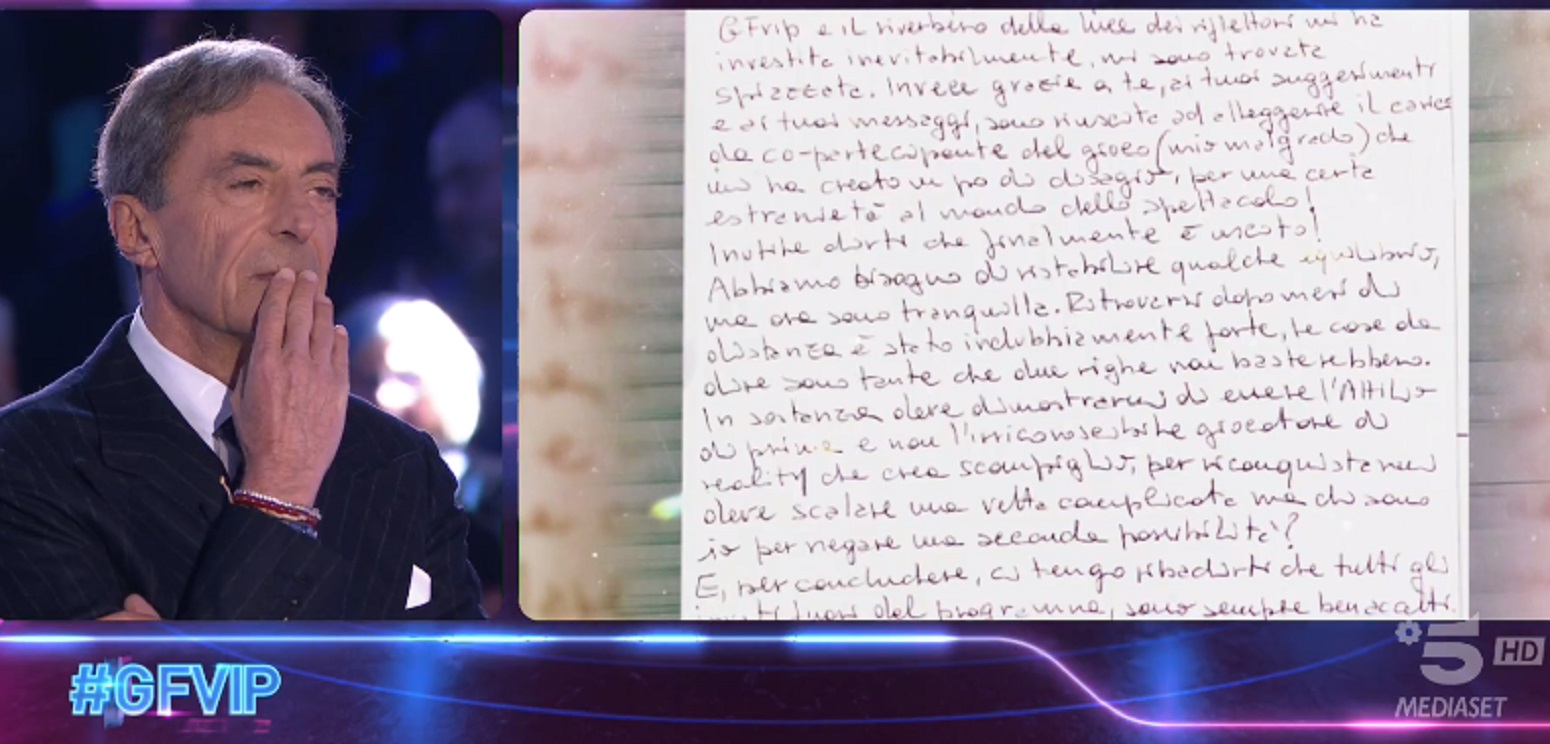 GFVip e il riverbero della luce dei riflettori mi ha
investita inevitabilmente, mi sono trovata
spiazzata. Invece grazie a te, ai tuoi suggerimenti
e ai tuoi messaggi, sono riuscita ad alleggerire il carico
da co-partecipante del gioco (mio malgrado) che
mi ha creato un po di disagio, per una certa
estraneità al mondo dello spettacolo!
Inutile dirti che finalmente è uscito!
Abbiamo bisogno di ristabilire qualche equilibrio,
ma ora sono tranquilla. Ritroversi dopo mesi di
distanza è stato indubbiamente forte, le cose da
dire sono tante che due righe non basterebbero.
In sostanza deve dimostrarmi di essere l'Attilio
di prima e non l'irriconoscibile giocatore di
reality che crea scompiglio, per riconquistarmi
deve scalare una vetta complicata ma chi sono
io per negare una seconda possibilità?
E, per concludere, ci tengo ribadirti che tutti gli
inviti fuori dal programma, sono sempre ben accetti.
#GFVIP
5 HD
MEDIASET